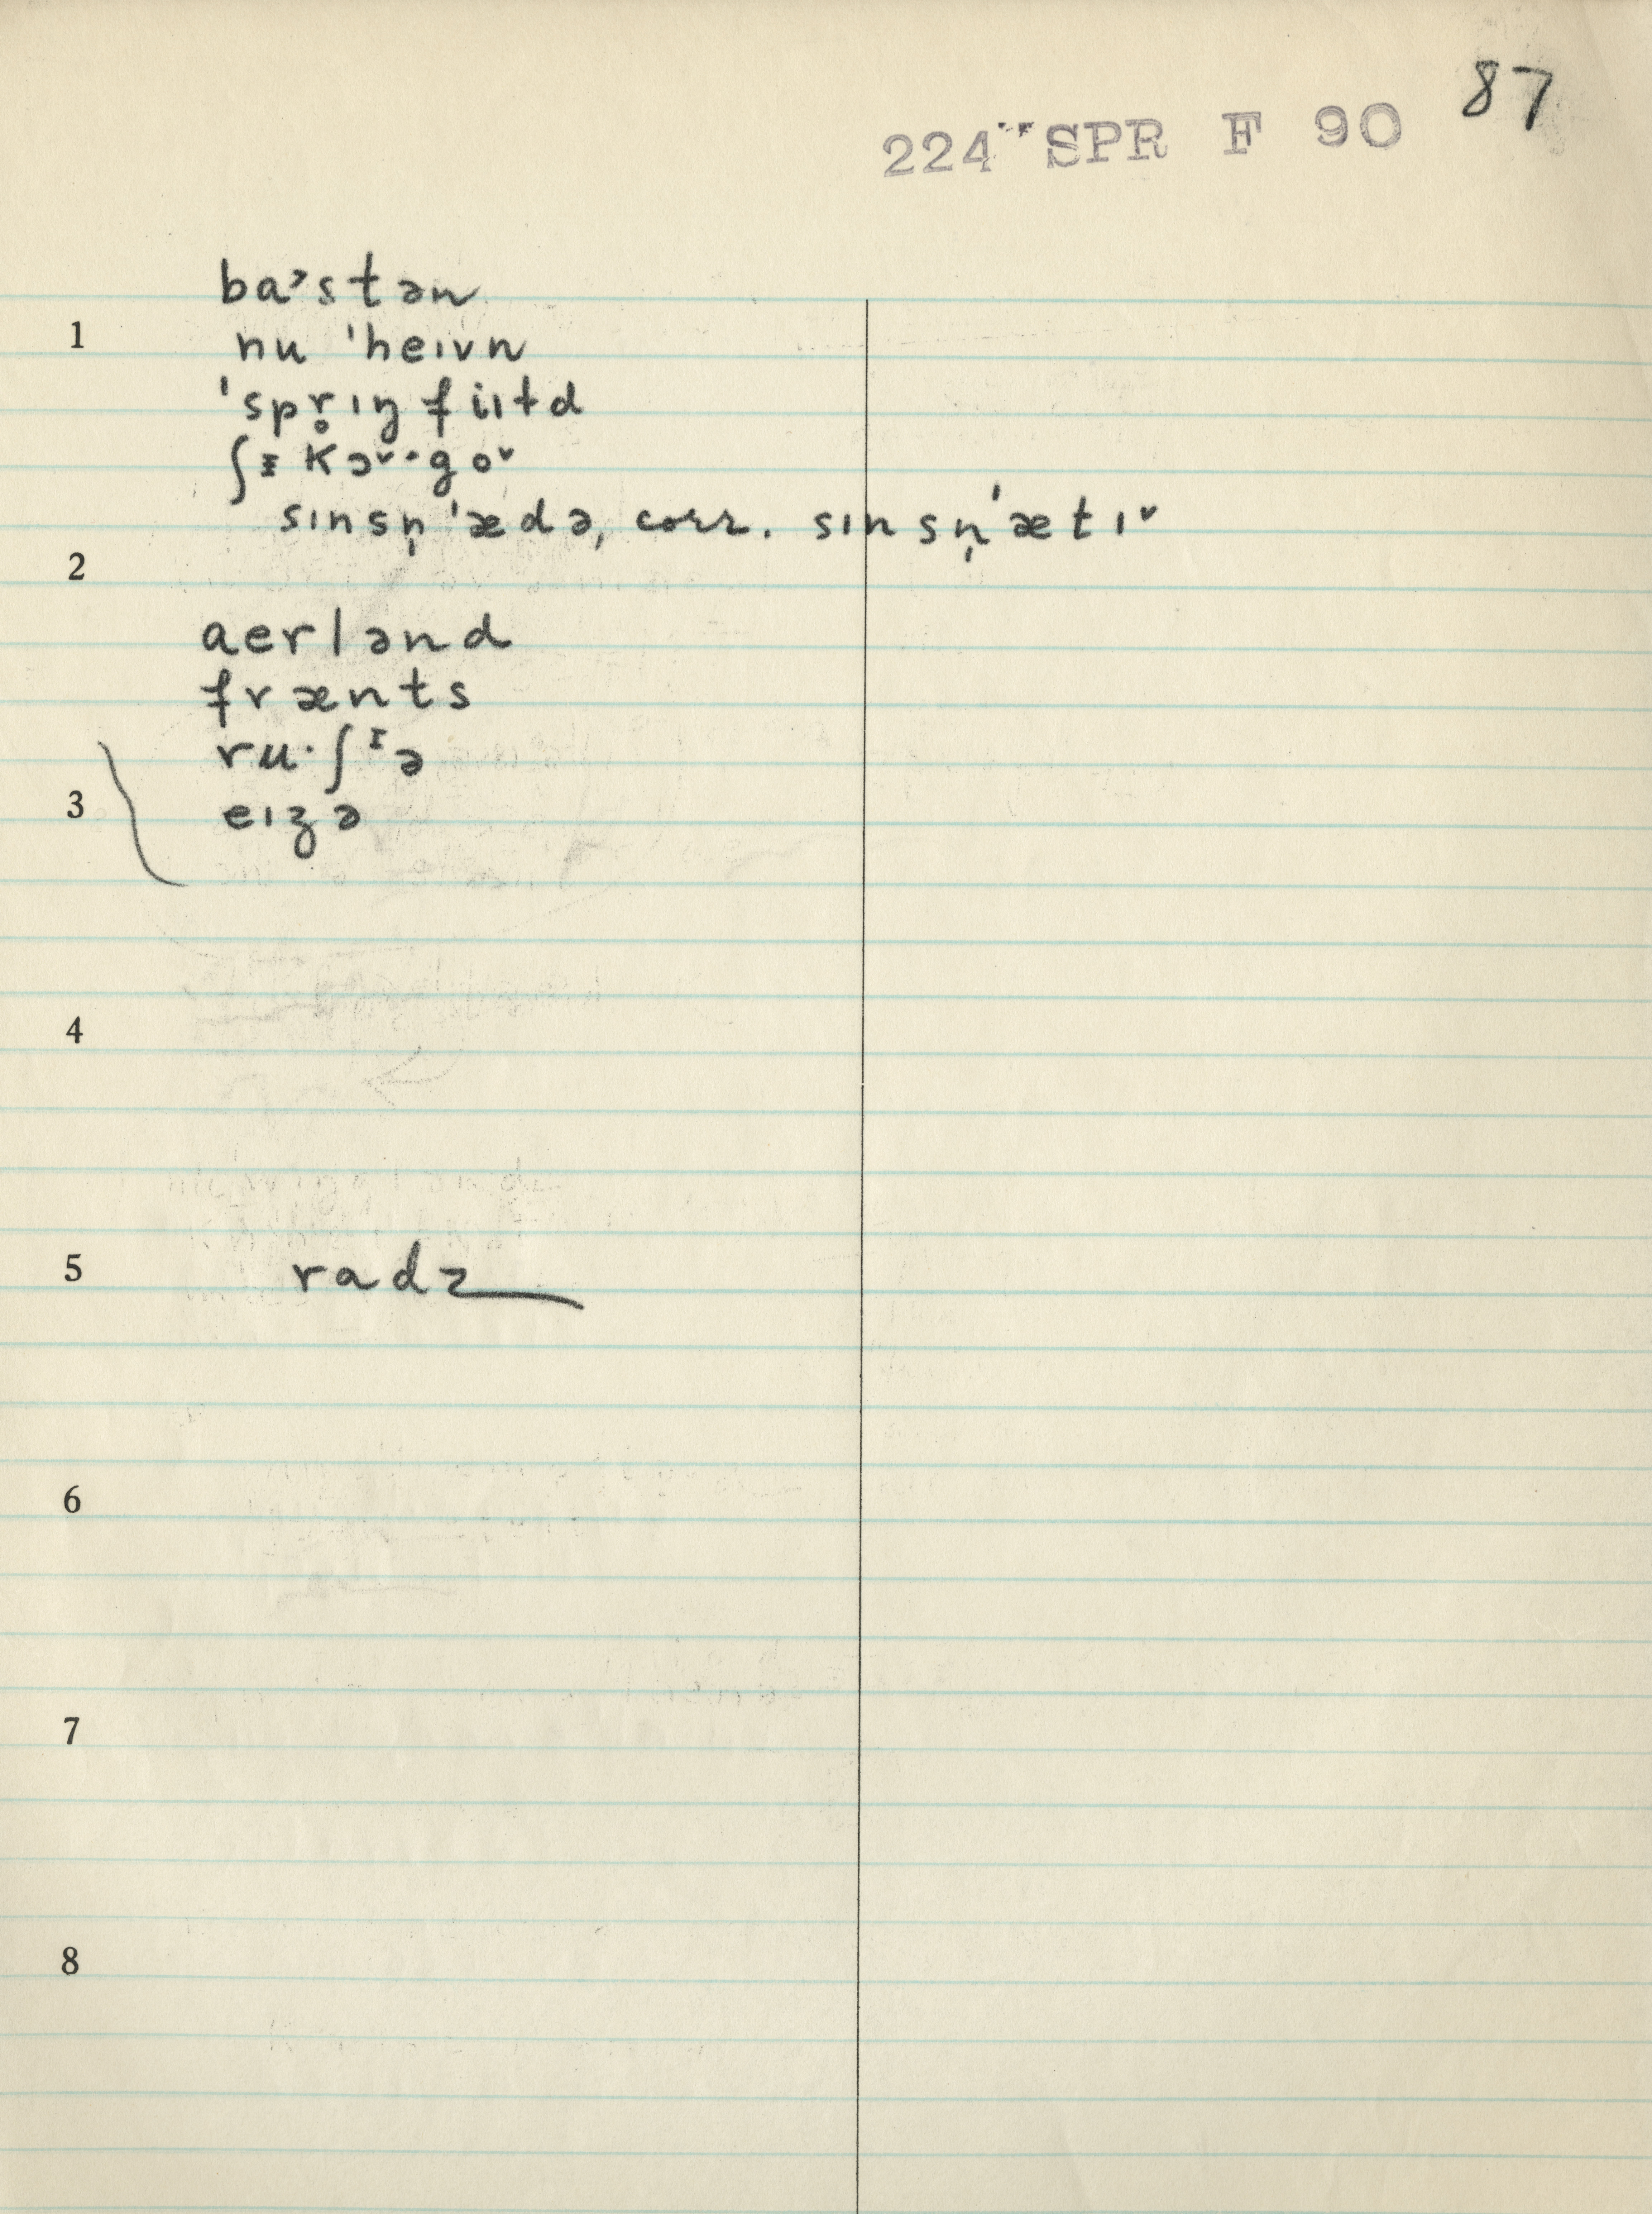 87
224 SPR F 90
ba˃stən
1
nu ˈheɪvn
ˈspr̥ɪŋfiɪɫd
ʃɪkɔ˅·go˅
sɪnsn̩ˈædə, corr. sɪnsn̩ˈætɪ˅
2
aerlənd
frænts
ru·ʃᶦə
3
eɪʒə
4
5
radz
6
7
8